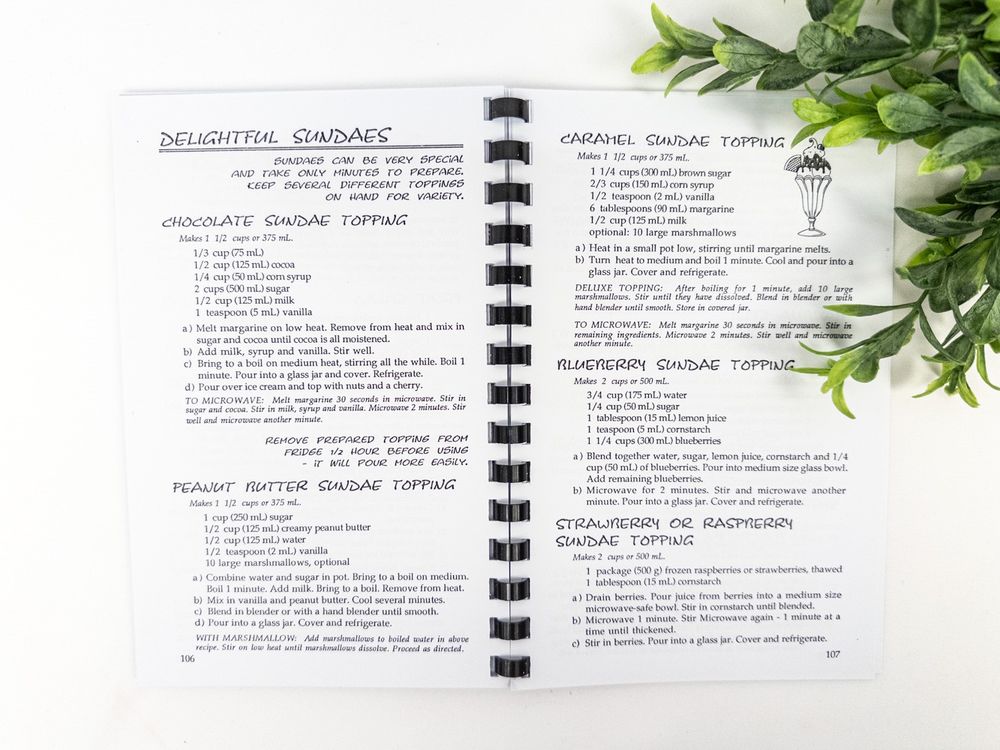 DELIGHTFUL SUNDAES
SUNDAES CAN BE VERY SPECIAL
AND TAKE ONLY MINUTES TO PREPARE.
KEEP SEVERAL DIFFERENT TOPPINGS
ON HAND FOR VARIETY.
CHOCOLATE SUNDAE TOPPING
Makes 1 1/2 cups or 375 mL.
1/3 cup (75 mL)
1/2 cup (125 mL) cocoa
1/4 cup (50 mL) corn syrup
2 cups (500 mL) sugar
1/2 cup (125 mL) milk
1 teaspoon (5 mL) vanilla
a) Melt margarine on low heat. Remove from heat and mix in
sugar and cocoa until cocoa is all moistened.
b) Add milk, syrup and vanilla. Stir well.
c) Bring to a boil on medium heat, stirring all the while. Boil 1
minute. Pour into a glass jar and cover. Refrigerate.
d) Pour over ice cream and top with nuts and a cherry.
TO MICROWAVE: Melt margarine 30 seconds in microwave. Stir in
sugar and cocoa. Stir in milk, syrup and vanilla. Microwave 2 minutes. Stir
well and microwave another minute.
REMOVE PREPARED TOPPING FROM
FRIDGE 1/2 HOUR BEFORE USING
- IT WILL POUR MORE EASILY.
PEANUT BUTTER SUNDAE TOPPING
Makes 1 1/2 cups or 375 mL.
1 cup (250 mL) sugar
1/2 cup (125 mL) creamy peanut butter
1/2 cup (125 mL) water
1/2 teaspoon (2 mL) vanilla
10 large marshmallows, optional
a) Combine water and sugar in pot. Bring to a boil on medium.
Boil 1 minute. Add milk. Bring to a boil. Remove from heat.
b) Mix in vanilla and peanut butter. Cool several minutes.
c) Blend in blender or with a hand blender until smooth.
d) Pour into a glass jar. Cover and refrigerate.
WITH MARSHMALLOW: Add marshmallows to boiled water in above
recipe. Stir on low heat until marshmallows dissolve. Proceed as directed.
106
CARAMEL SUNDAE TOPPING
Makes 1 1/2 cups or 375 mL.
1 1/4 cups (300 mL) brown sugar
2/3 cups (150 mL) corn syrup
1/2 teaspoon (2 mL) vanilla
6 tablespoons (90 mL) margarine
1/2 cup (125 mL) milk
optional: 10 large marshmallows
a) Heat in a small pot low, stirring until margarine melts.
b) Turn heat to medium and boil 1 minute. Cool and pour into a
glass jar. Cover and refrigerate.
DELUXE TOPPING: After boiling for 1 minute, add 10 large
marshmallows. Stir until they have dissolved. Blend in blender or with
hand blender until smooth. Store in covered jar.
TO MICROWAVE: Melt margarine 30 seconds in microwave. Stir in
remaining ingredients. Microwave 2 minutes. Stir well and microwave
another minute.
BLUEBERRY SUNDAE TOPPING
Makes 2 cups or 500 mL.
3/4 cup (175 mL) water
1/4 cup (50 mL) sugar
1 tablespoon (15 mL) lemon juice
1 teaspoon (5 mL) cornstarch
1 1/4 cups (300 mL) blueberries
a) Blend together water, sugar, lemon juice, cornstarch and 1/4
cup (50 mL) of blueberries. Pour into medium size glass bowl.
Add remaining blueberries.
b) Microwave for 2 minutes. Stir and microwave another
minute. Pour into a glass jar. Cover and refrigerate.
STRAWBERRY OR RASPBERRY
SUNDAE TOPPING
Makes 2 cups or 500 mL.
1 package (500 g) frozen raspberries or strawberries, thawed
1 tablespoon (15 mL) cornstarch
a) Drain berries. Pour juice from berries into a medium size
microwave-safe bowl. Stir in cornstarch until blended.
b) Microwave 1 minute. Stir Microwave again - 1 minute at a
time until thickened.
c) Stir in berries. Pour into a glass jar. Cover and refrigerate.
107